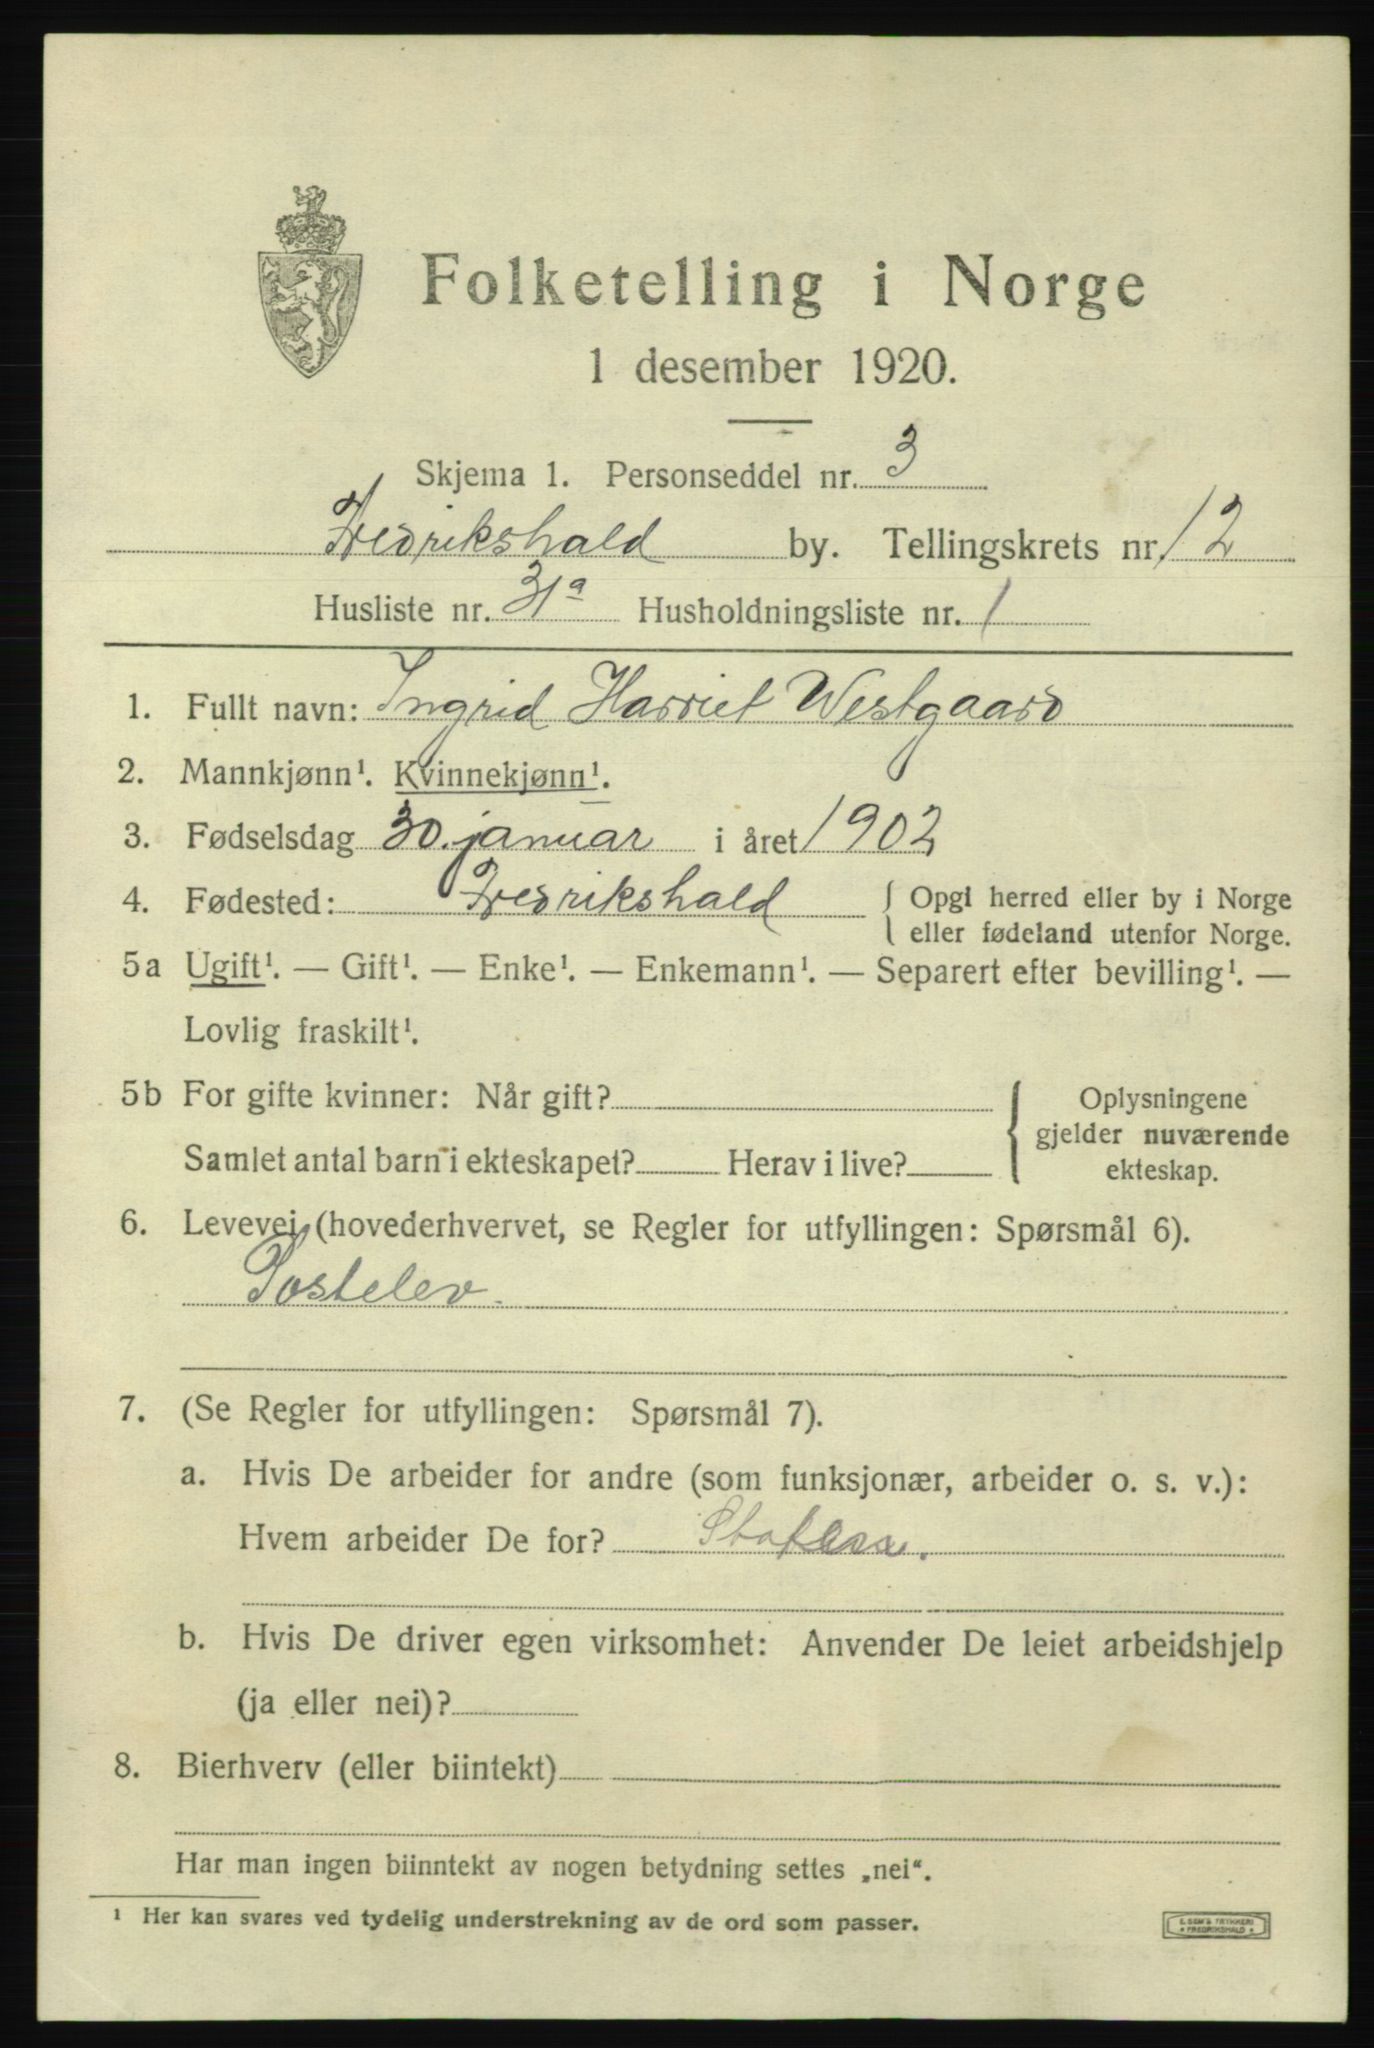 Folketelling i Norge
1 desember 1920.
Skjema 1. Personseddel nr. 3
Fredrikshald by. Tellingskrets nr. 12
Husliste nr. 31a Husholdningsliste nr. 1
1. Fullt navn: Ingrid Harriet Westgaard
2. Mannkjønn¹. Kvinnekjønn¹.
3. Fødselsdag 30. januar i året 1902
4. Fødested: Fredrikshald { Opgi herred eller by i Norge
eller fødeland utenfor Norge.
5a Ugift¹. — Gift¹. — Enke¹. — Enkemann¹. — Separert efter bevilling¹. —
Lovlig fraskilt¹.
5b For gifte kvinner: Når gift?
Samlet antal barn i ekteskapet? Herav i live?
Oplysningene
gjelder nuværende
ekteskap.
6. Levevei (hovederhvervet, se Regler for utfyllingen: Spørsmål 6).
Postelev.
7. (Se Regler for utfyllingen: Spørsmål 7).
a. Hvis De arbeider for andre (som funksjonær, arbeider o. s. v.):
Hvem arbeider De for?
b. Hvis De driver egen virksomhet: Anvender De leiet arbeidshjelp
(ja eller nei)?
8. Bierhverv (eller biintekt)
Har man ingen biinntekt av nogen betydning settes „nei“.
¹ Her kan svares ved tydelig understrekning av de ord som passer.
E. SEM'S TRYKKERI
FREDRIKSHALD